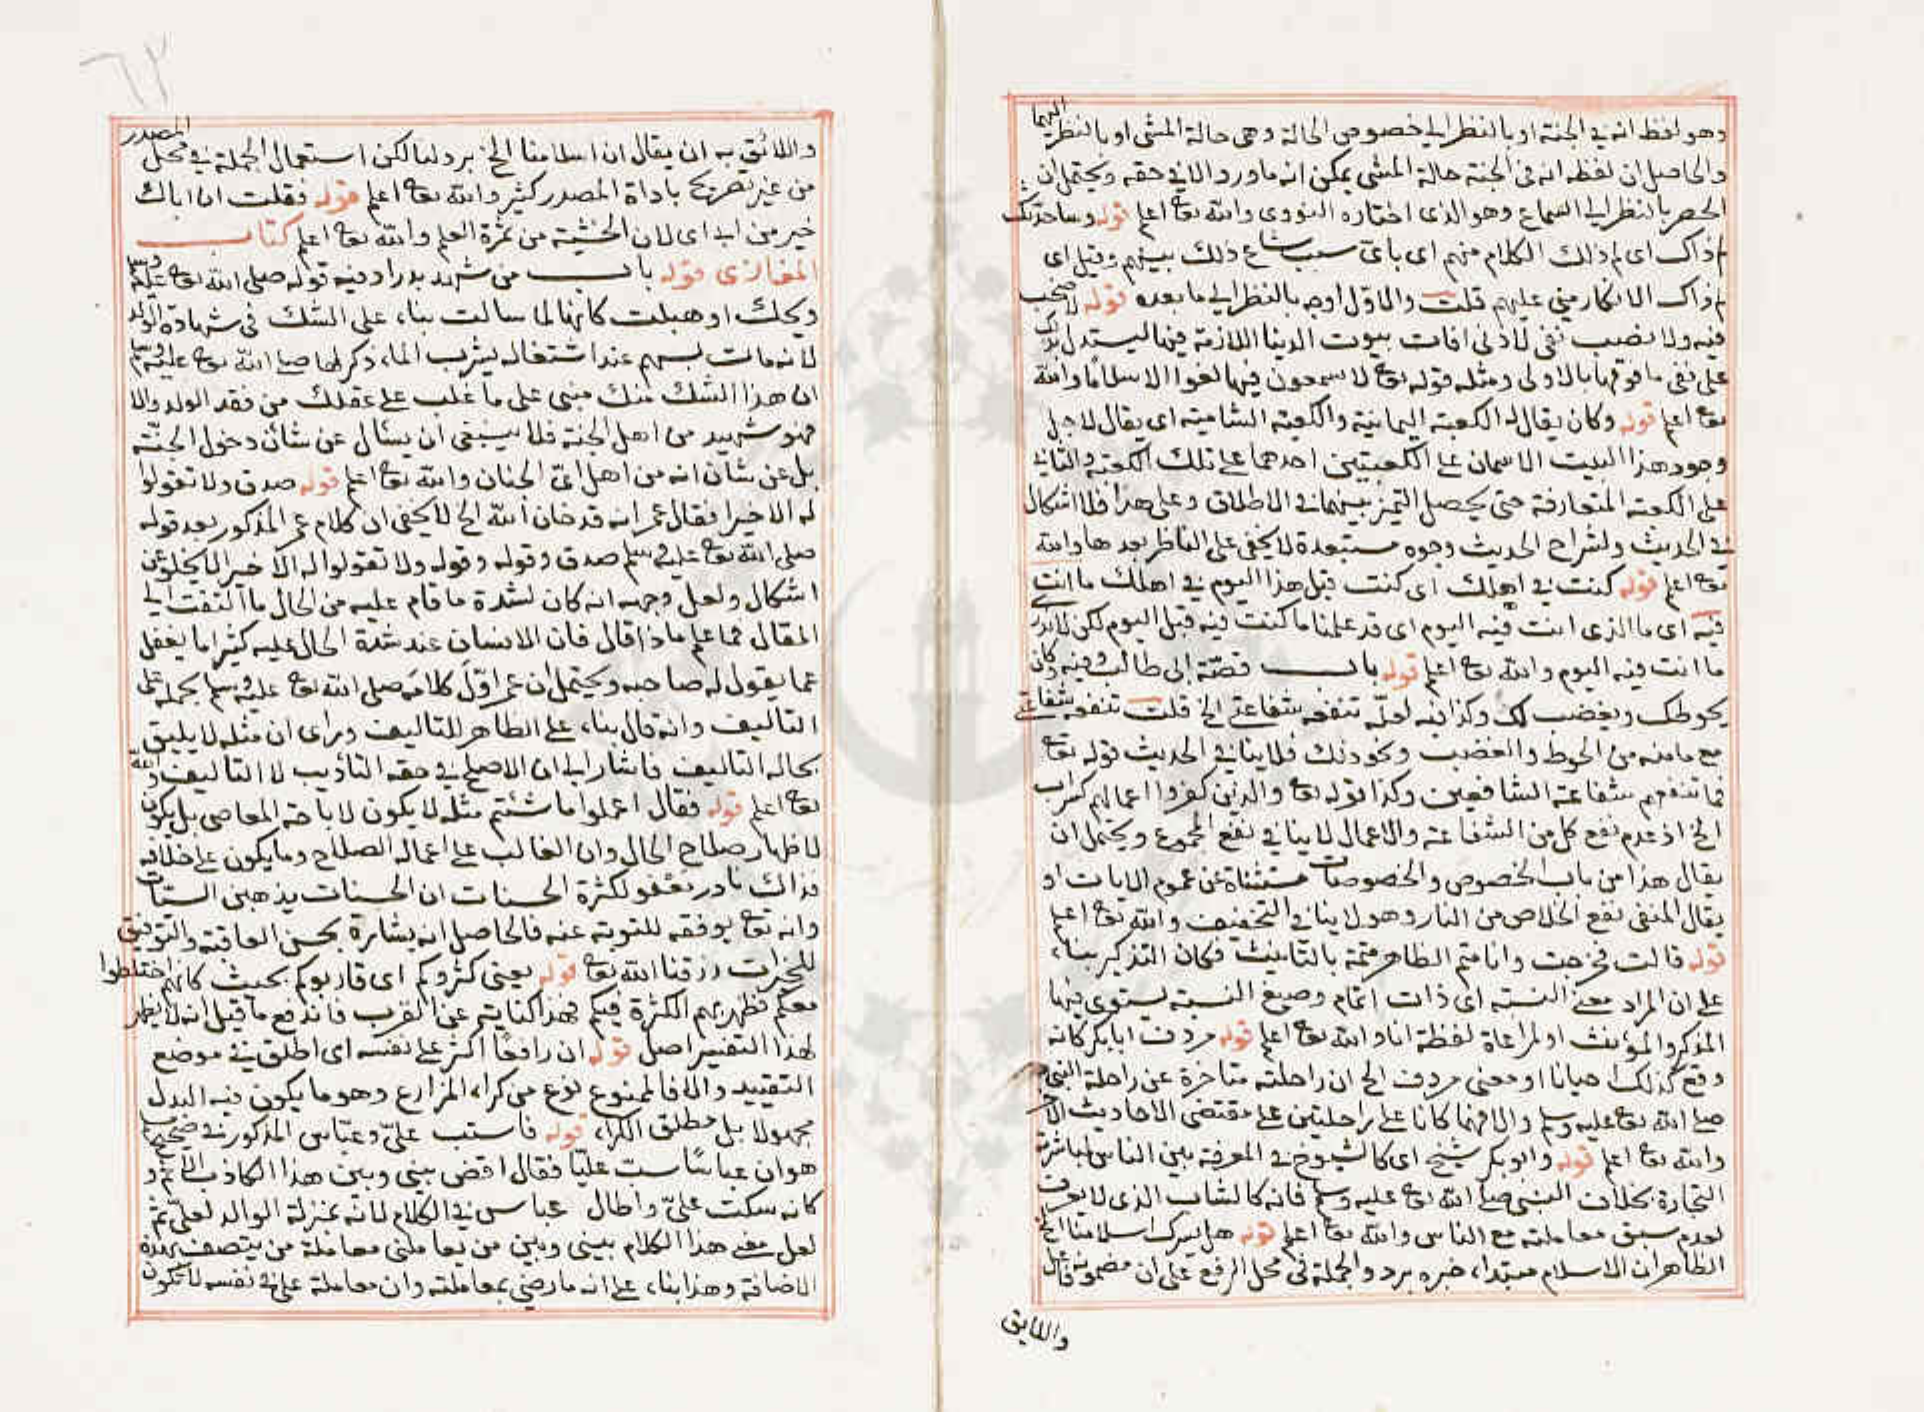 وهو لفظ انه في الجنة او بالنظر الى خصوص الحالة وهي حالة المشي او بالنظر اليهما
والحاصل ان لفظه انه في الجنة حالة المشي يمكن انه ما ورد الا في حقه ويحتمل ان
الحصر بالنظر الى السماع وهو الذي اختاره النووي والله تعا اعلم قوله وساحدثك
لم ذاك اى لم ذلك الكلام منهم اى باى سبب شاع ذلك بينهم وقيل اى
لم ذاك الانكار مني عليهم قلت والاول اوجه بالنظر الى ما بعده قوله لا صخب
فيه ولا نصب نفي لادنى افات بيوت الدنيا اللازمة فيها ليستدل بذلك
على نفي ما فوقها بالاولى ومثله قوله تعا لا يسمعون فيها لغوا الا سلاما والله
تعا اعلم قوله وكان يقال له الكعبة اليمانية والكعبة الشامية اى يقال لاجل
وجود هذا البيت الاسمان على الكعبتين احدهما على تلك الكعبة والثاني
على الكعبة المتعارفة حتى يحصل التميز بينهما في الاطلاق وعلى هذا فلا اشكال
في الحديث ولشراح الحديث وجوه مستبعدة لا يخفى على الناظر بعدها والله
تعا اعلم قوله كنت في اهلك اى كنت قبل هذا اليوم في اهلك ما انت
فيه اى ما الذي انت فيه اليوم اى قد علمنا ما كنت فيه قبل اليوم لكن لا ندرى
ما انت فيه اليوم والله تعا اعلم قوله باب قصة ابى طالب وفيه كان
يحوطك ويغضب لك وكذا فيه لعله تنفعه شفاعتي الخ قلت تنفعه شفاعتي
مع ما منه من الحوط والغضب ونحو ذلك فلا ينافي الحديث قوله تعا
فما تنفعهم شفاعة الشافعين وكذا قوله تعا والذين كفروا اعمالهم كسراب
الخ اذ عدم نفع كل من الشفاعة والاعمال لا ينافي نفع المجموع ويحتمل ان
يقال هذا من باب الخصوص والخصوصيات مستثناة عن عموم الايات او
يقال المنفي نفع الخلاص من النار وهو لا ينافي التخفيف والله تعا اعلم
قوله قالت فخرجت وانا متم الظاهر متمة بالتانيث فكان التذكير بناء
على ان المراد معنى النسبة اى ذات اتمام وصيغ النسبة يستوى فيها
المذكر والمؤنث او لمراعاة لفظة انا والله تعا اعلم قوله مردف ابا بكر كانه
وقع كذلك احيانا او معنى مردف الخ ان راحلته متاخرة عن راحلة النبي
صلى الله تعا عليه وسلم والا فهما كانا على راحلتين على مقتضى الاحاديث الاخر
والله تعا اعلم قوله وابو بكر شيخ اى كالشيوخ في المعرفة بين الناس لمباشرة
التجارة بخلاف النبي صلى الله تعا عليه وسلم فانه كالشاب الذي لا يعرف
لعدم سبق معاملته مع الناس والله تعا اعلم قوله هل يسرك اسلامنا الخ
الظاهر ان الاسلام مبتدا، خبره برد والجملة في محل الرفع على ان مضمونه فاعل
والائق
٦٢
واللائق به ان يقال ان اسلامنا الخ برد لنا لكن استعمال الجملة في محل المصدر
من غير تصريح باداة المصدر كثير والله تعا اعلم قوله فقلت ان اباك
خير من ابى اى لان الخشية من ثمرة العلم والله تعا اعلم كتاب
المغازى قوله باب من شهد بدرا وفيه قوله صلى الله تعا عليه وسلم
ويحك او هبلت كانها لما سالت بناء على الشك في شهادة الولد
لانه مات بسهم عند اشتغاله بشرب الماء ذكر لها صلى الله تعا عليه وسلم
ان هذا الشك منك مبنى على ما غلب على عقلك من فقد الولد والا
فهو شهيد من اهل الجنة فلا ينبغي ان يسأل عن شان دخول الجنة
بل عن شان انه من اهل اى الجنان والله تعا اعلم قوله صدق ولا تقولوا
له الا خيرا فقال عمر انه قد خان الله الخ لا يخفى ان كلام عمر المذكور بعد قوله
صلى الله تعا عليه وسلم صدق وقوله وقوله ولا تقولوا له الا خيرا لا يخلو عن
اشكال ولعل وجهه انه كان لشدة ما قام عليه من الحال ما التفت الى
المقال فما علم ماذا قال فان الانسان عند شدة الحال عليه كثيرا ما يغفل
عما يقول له صاحبه ويحتمل ان عمر اوّل كلامه صلى الله تعا عليه وسلم بحمله على
التاليف وانه قال بناء على الظاهر للتاليف وراى ان مثله لا يليق
بحاله التاليف فاشار الى ان الاصلح في حقه التاديب لا التاليف والله
تعا اعلم قوله فقال اعملوا ما شئتم مثله لا يكون لاباحة المعاصي بل يكون
لاظهار صلاح الحال وان الغالب على اعماله الصلاح وما يكون على خلافه
فذاك نادر يعفو لكثرة الحسنات ان الحسنات يذهبن السيات
وانه تعا يوفقه للتوبة عنه فالحاصل انه بشارة بحسن العاقبة والتوفيق
للخيرات رزقنا الله تعا قوله يعنى كثروكم اى قاربوكم بحيث كانهم اختلطوا
معكم فظهر بهم الكثرة فيكم فهذا كناية عن القرب فاندفع ما قيل انه لا يظهر
لهذا التفسير اصل قوله ان رافعا اكثر على نفسه اى اطلق في موضع
التقييد والا فالممنوع نوع من كراء المزارع وهو ما يكون فيه البدل
مجهولا بل مطلق الكراء قوله فاستب على وعباس المذكور في
هو ان عباسا سب عليا فقال اقض بيني وبين هذا الكاذب الاثم و
كانه سكت على واطال عباس في الكلام لانه بمنزلة الوالد لعلى ثم
لعل معنى هذا الكلام بيني وبين من يعاملنى معاملة من يتصف بهذه
الاضافة وهذا بناء على انه ما رضى بمعاملته وان معاملة على في نفسه لا تكون